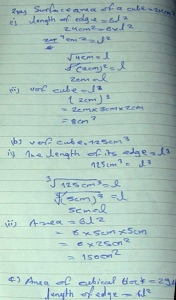 2(a) Surface area of a cube = 24cm²
i) length of edge = 6l²
24cm² = 6×l²
4cm² = l²
√4cm = l
√(2cm)² = l
2cm = l
ii) vol cube = l³
(2cm)³
= 2cm×2cm×2cm
= 8cm³
(b) vol cube = 125cm³
i) The length of its edge = l³
125cm³ = l³
³√125cm³ = l
³√(5cm)³ = l
5cm = l
ii) Area = 6l²
= 6×5cm×5cm
= 6×25cm²
= 150cm²
c) Area of cubical block = 29
length of edge = 6l²